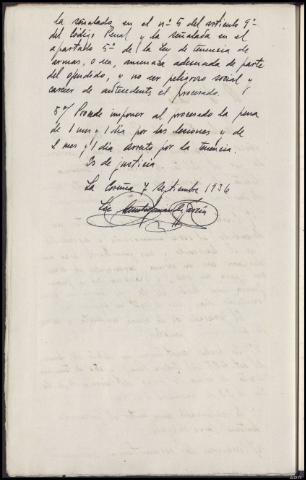 la señalada, en el nº 5 del artículo 9º
del Código Penal y la señalada en el
apartado 5º de la Ley de tenencia de
armas, o sea, amenaza adecuada de parte
del ofendido, y no ser peligroso social y
carecer de antecedentes el procesado.
5º/ Procede imponer al procesado la pena
de 1 mes y 1 día por las lesiones y de
2 mes y 1 día arresto por la tenencia.
Es de justicia
La Coruña 7 Septiembre 1936
García